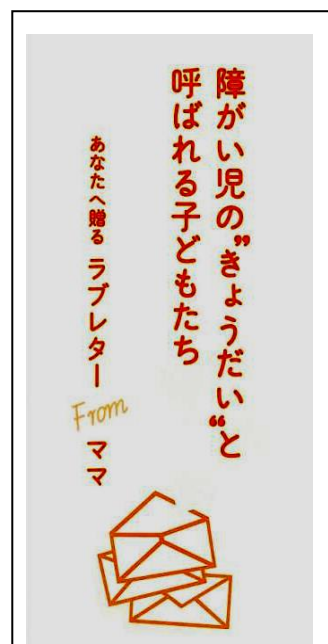 障がい児の”きょうだい“と
呼ばれる子どもたち
あなたへ贈る ラブレター
From ママ